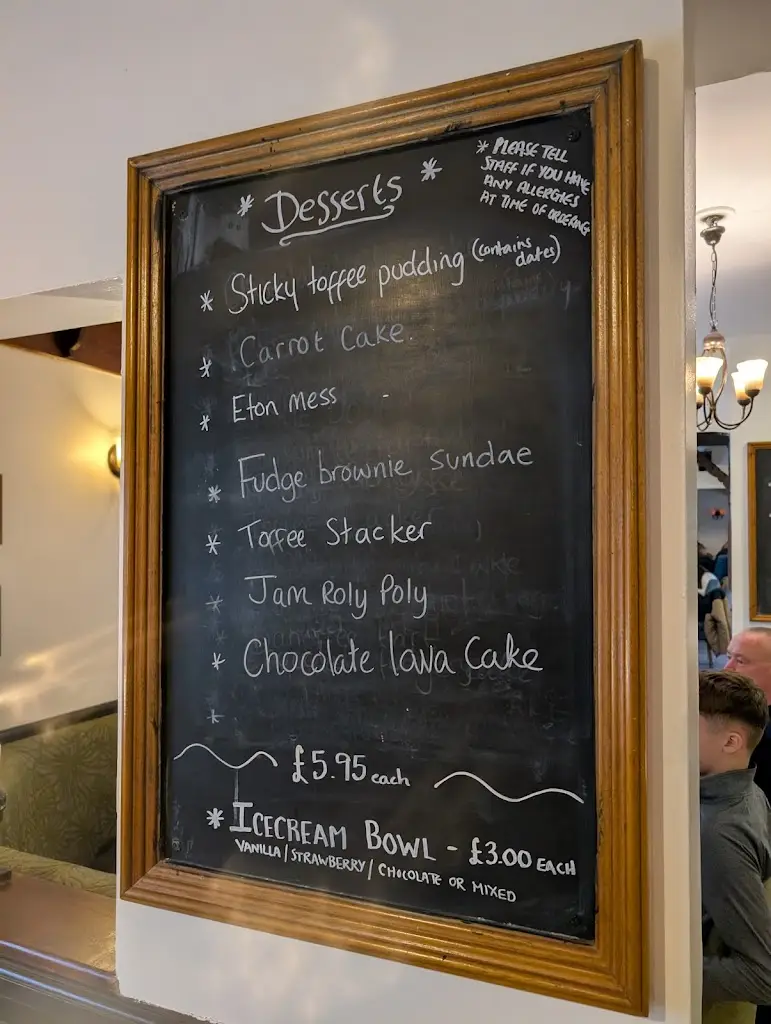 * Desserts *
* PLEASE TELL
STAFF IF YOU HAVE
ANY ALLERGIES
AT TIME OF ORDERING
* Sticky toffee pudding (contains
dates)
* Carrot Cake
* Eton Mess
* Fudge brownie sundae
* Toffee Stacker
* Jam Roly Poly
* Chocolate lava Cake
*
£5.95 each
* ICECREAM BOWL - £3.00 EACH
VANILLA / STRAWBERRY / CHOCOLATE OR MIXED